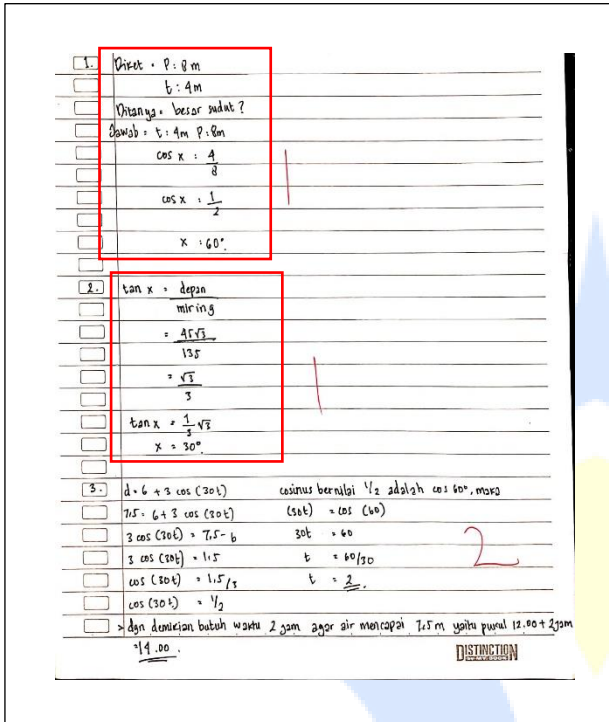 1. Diket = P : 8 m
t : 4 m
Ditanya = besar sudut ?
Jawab = t : 4m P : 8m
cos x : 4/8
cos x : 1/2
x : 60°.
1
2. tan x = depan/miring
= 45√3/135
= √3/3
tan x = 1/3 √3
x = 30°.
1
3. d = 6 + 3 cos (30t)
7,5 = 6 + 3 cos (30t)
3 cos (30t) = 7,5 - 6
3 cos (30t) = 1,5
cos (30t) = 1,5/3
cos (30t) = 1/2
cosinus bernilai 1/2 adalah cos 60°, maka
(30t) = cos (60)
30t = 60
t = 60/30
t = 2.
2
> dgn demikian butuh waktu 2 jam agar air mencapai 7,5 m yaitu pukul 12.00 + 2 jam
= 14.00.
DISTINCTION